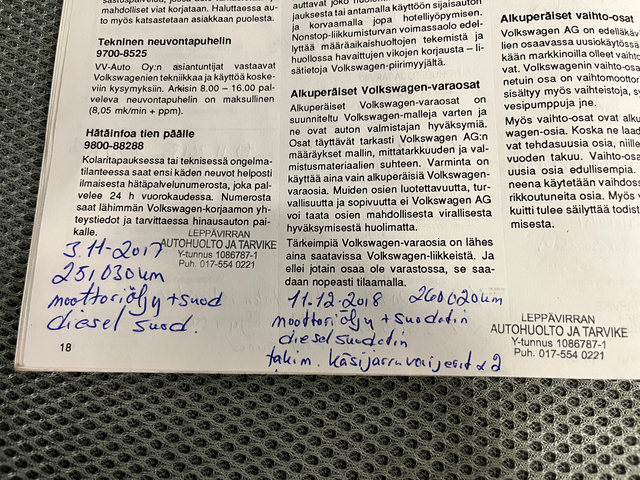 mahdolliset viat korjataan. Haluttaessa au-
to myös katsastetaan asiakkaan puolesta.
Tekninen neuvontapuhelin
9700-8525
VV-Auto Oy:n asiantuntijat vastaavat
Volkswagenien tekniikkaa ja käyttöä koske-
viin kysymyksiin. Arkisin 8.00 – 16.00 pal-
veleva neuvontapuhelin on maksullinen
(8,05 mk/min + ppm).
Hätäinfoa tien päälle
9800-88288
Kolaritapauksessa tai teknisessä ongelma-
tilanteessa saat ensi käden neuvot helposti
ilmaisesta hätäpalvelunumerosta, joka pal-
velee 24 h vuorokaudessa. Numerosta
saat lähimmän Volkswagen-korjaamon yh-
teystiedot ja tarvittaessa hinausauton pai-
kalle.
LEPPÄVIRRAN
AUTOHUOLTO JA TARVIKE
Y-tunnus 1086787-1
Puh. 017-554 0221
3.11-2017
251,030 km
moottoriöljy + suod
diesel suod.
18
jauksesta tai antamalla käyttöön sijaisauton
ja korvaamalla jopa hotelliyöpymisen.
Nonstop-liikkumisturvan voimassaolo edel-
lyttää määräaikaishuoltojen tekemistä ja
huollossa havaittujen vikojen korjausta – li-
sätietoja Volkswagen-piirimyyjältä.
Alkuperäiset Volkswagen-varaosat
Alkuperäiset Volkswagen-varaosat on
suunniteltu Volkswagen-malleja varten ja
ne ovat auton valmistajan hyväksymiä.
Osat täyttävät tarkasti Volkswagen AG:n
määräykset mallin, mittatarkkuuden ja val-
mistusmateriaalien suhteen. Varminta on
käyttää aina vain alkuperäisiä Volkswagen-
varaosia. Muiden osien luotettavuutta, tur-
vallisuutta ja sopivuutta ei Volkswagen AG
voi taata osien mahdollisesta virallisesta
hyväksymisestä huolimatta.
Tärkeimpiä Volkswagen-varaosia on lähes
aina saatavissa Volkswagen-liikkeistä. Ja
ellei jotain osaa ole varastossa, se saa-
daan nopeasti tilaamalla.
11.12-2018 260020 km
moottoriöljy + suodatin
diesel suodatin
takim. käsijarruvaijerit x 2
Alkuperäiset vaihto-osat
Volkswagen AG on edelläkäv
lien osaavassa uusiokäytöss
kään markkinoilla olleet vaiht
vat. Volkswagenin vaihto-osa
netuin osa on vaihtomoottor
sisältyy myös vaihteistoja, s
vesipumppuja jne.
Myös vaihto-osat ovat alku
wagen-osia. Koska ne laad
vat tehdasuusia osia, niille
vuoden takuu. Vaihto-os
uusia osia edullisempia.
neena käytetään vaihdos
rikkoutuneita osia. Myös
kuitti tulee säilyttää todis
misesta.
LEPPÄVIRRAN
AUTOHUOLTO JA TARVIKE
Y-tunnus 1086787-1
Puh. 017-554 0221